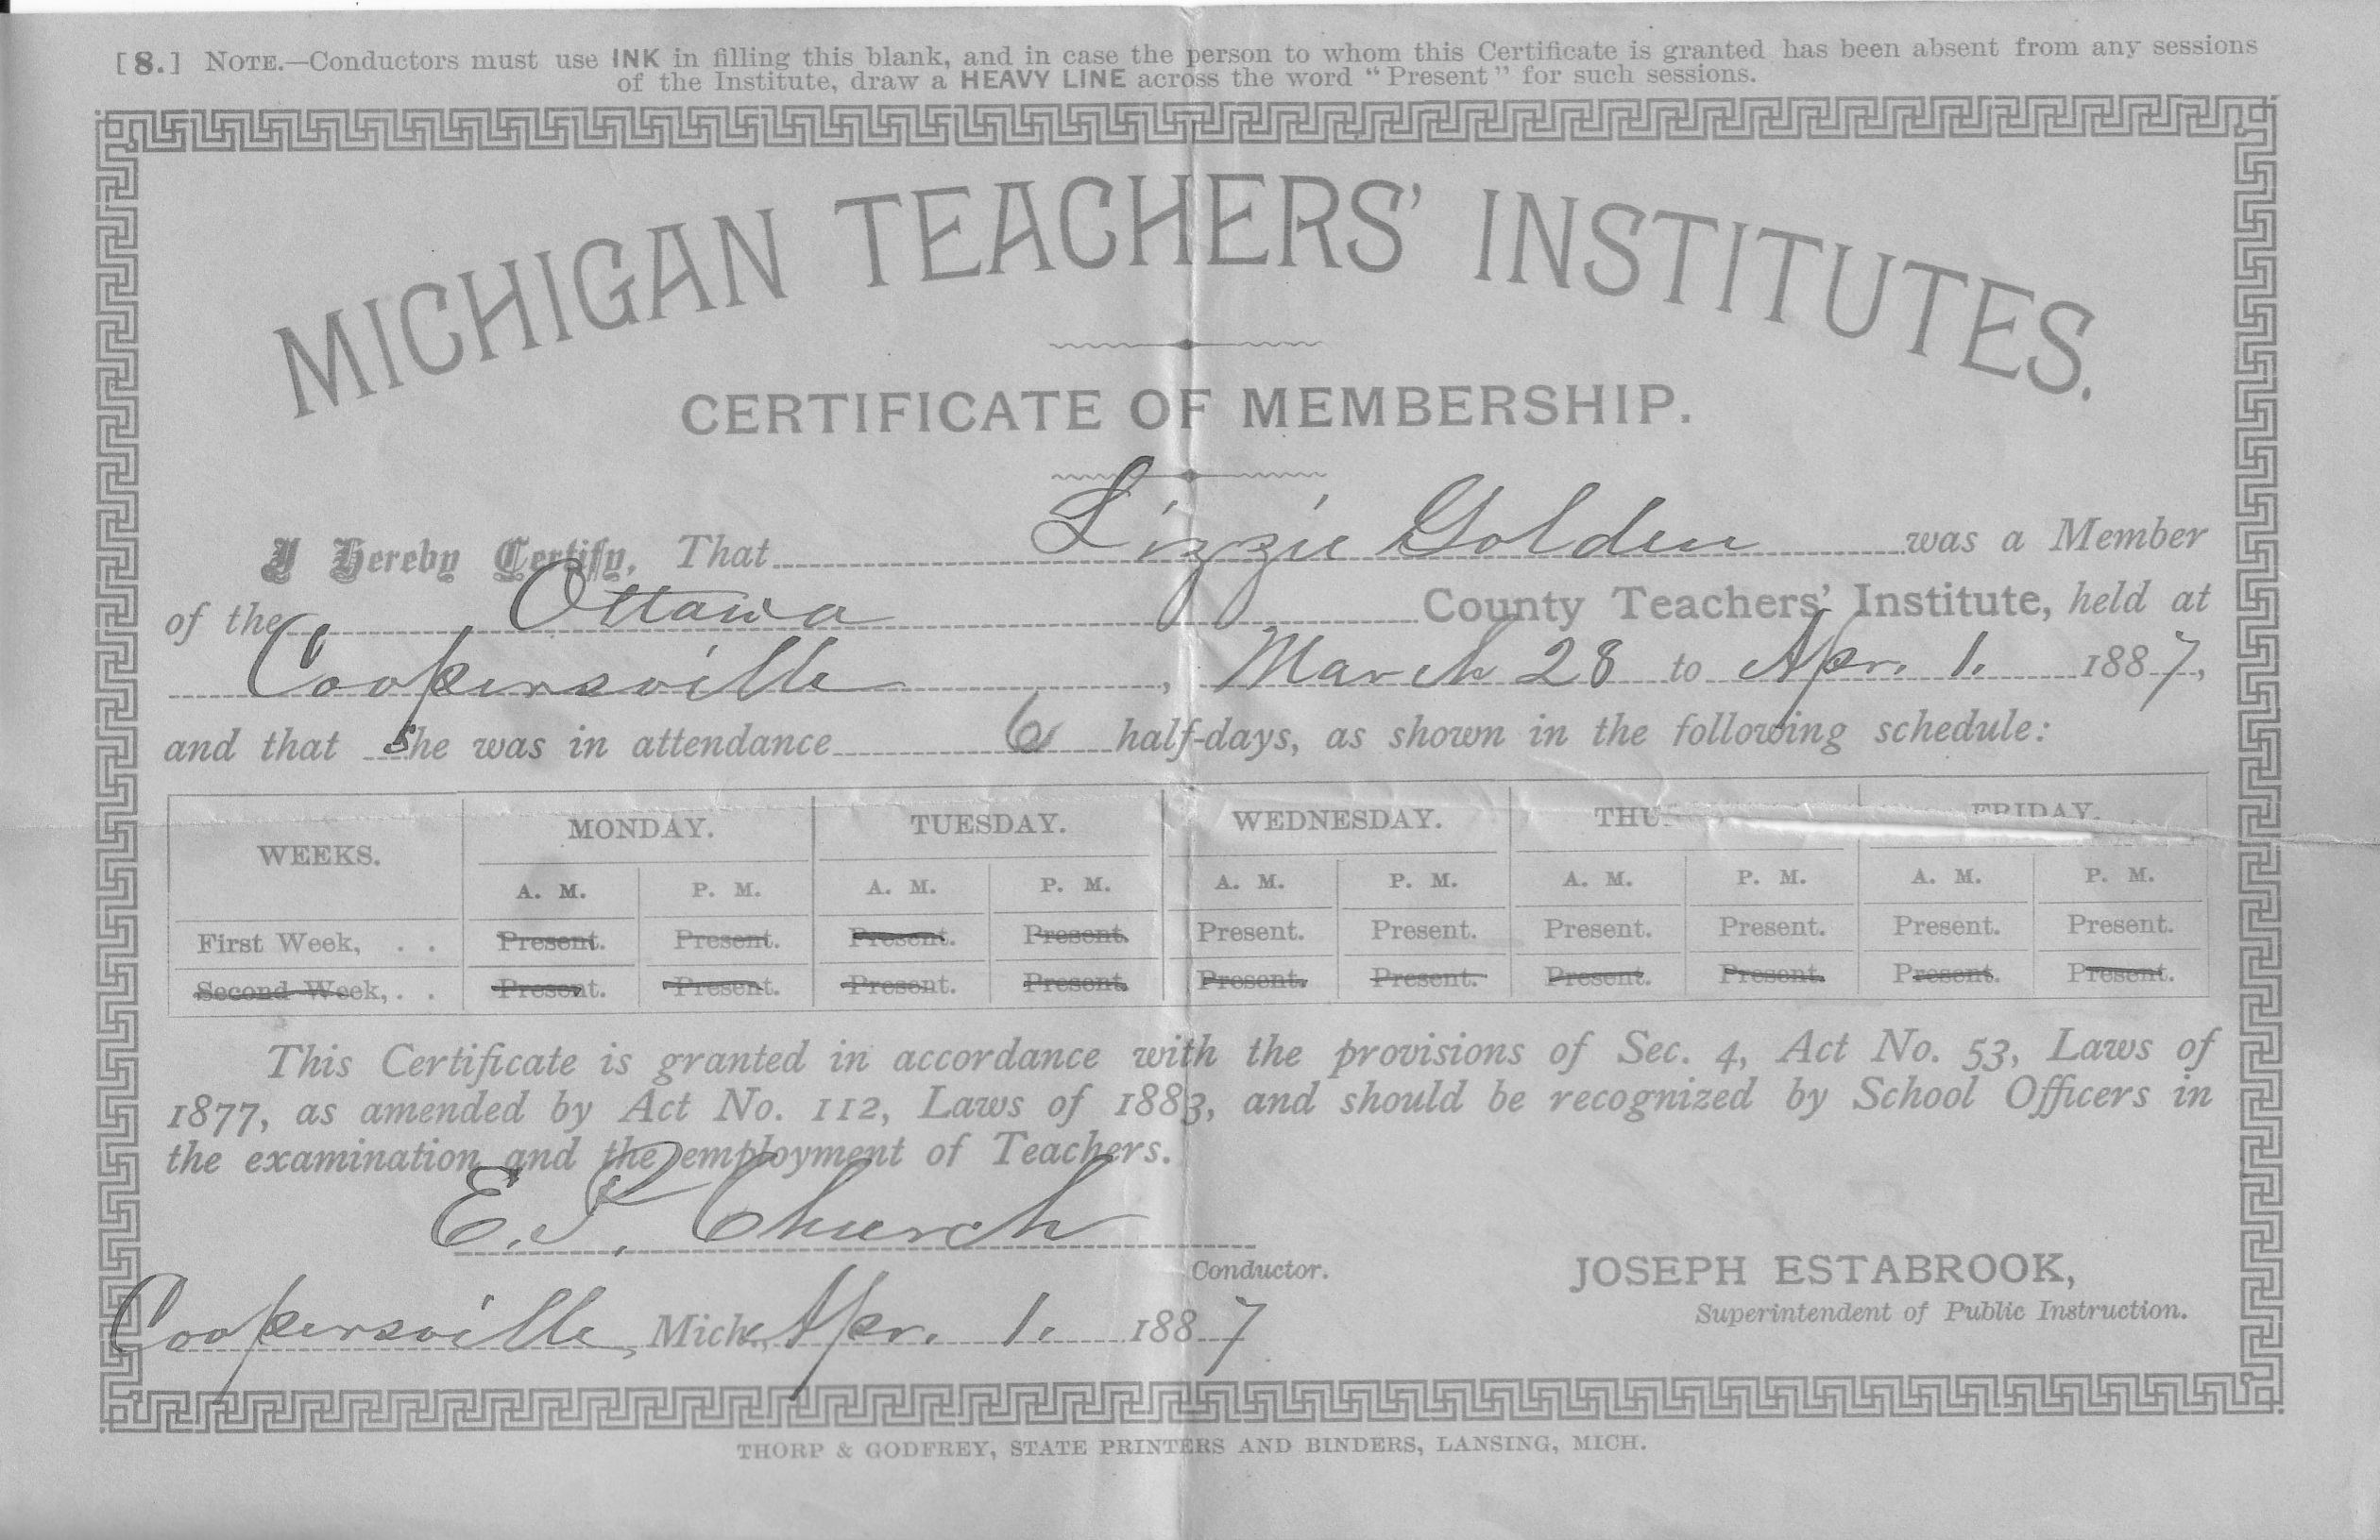 [8.] NOTE.—Conductors must use INK in filling this blank, and in case the person to whom this Certificate is granted has been absent from any sessions
of the Institute, draw a HEAVY LINE across the word "Present" for such sessions.
MICHIGAN TEACHERS' INSTITUTES.
CERTIFICATE OF MEMBERSHIP.
I Hereby Certify, That Lizzie Golden was a Member
of the Ottawa County Teachers' Institute, held at
Coopersville, March 28 to Apr. 1. 1887,
and that She was in attendance 6 half-days, as shown in the following schedule:
WEEKS. MONDAY. TUESDAY. WEDNESDAY. THU FRIDAY.
A. M. P. M. A. M. P. M. A. M. P. M. A. M. P. M. A. M. P. M.
First Week, . . Present. Present. Present. Present. Present. Present. Present. Present. Present. Present.
Second Week, . . Present. Present. Present. Present. Present. Present. Present. Present. Present. Present.
This Certificate is granted in accordance with the provisions of Sec. 4, Act No. 53, Laws of
1877, as amended by Act No. 112, Laws of 1883, and should be recognized by School Officers in
the examination and the employment of Teachers.
E. P. Church
Conductor.
JOSEPH ESTABROOK,
Superintendent of Public Instruction.
Coopersville, Mich., Apr. 1. 1887
THORP & GODFREY, STATE PRINTERS AND BINDERS, LANSING, MICH.